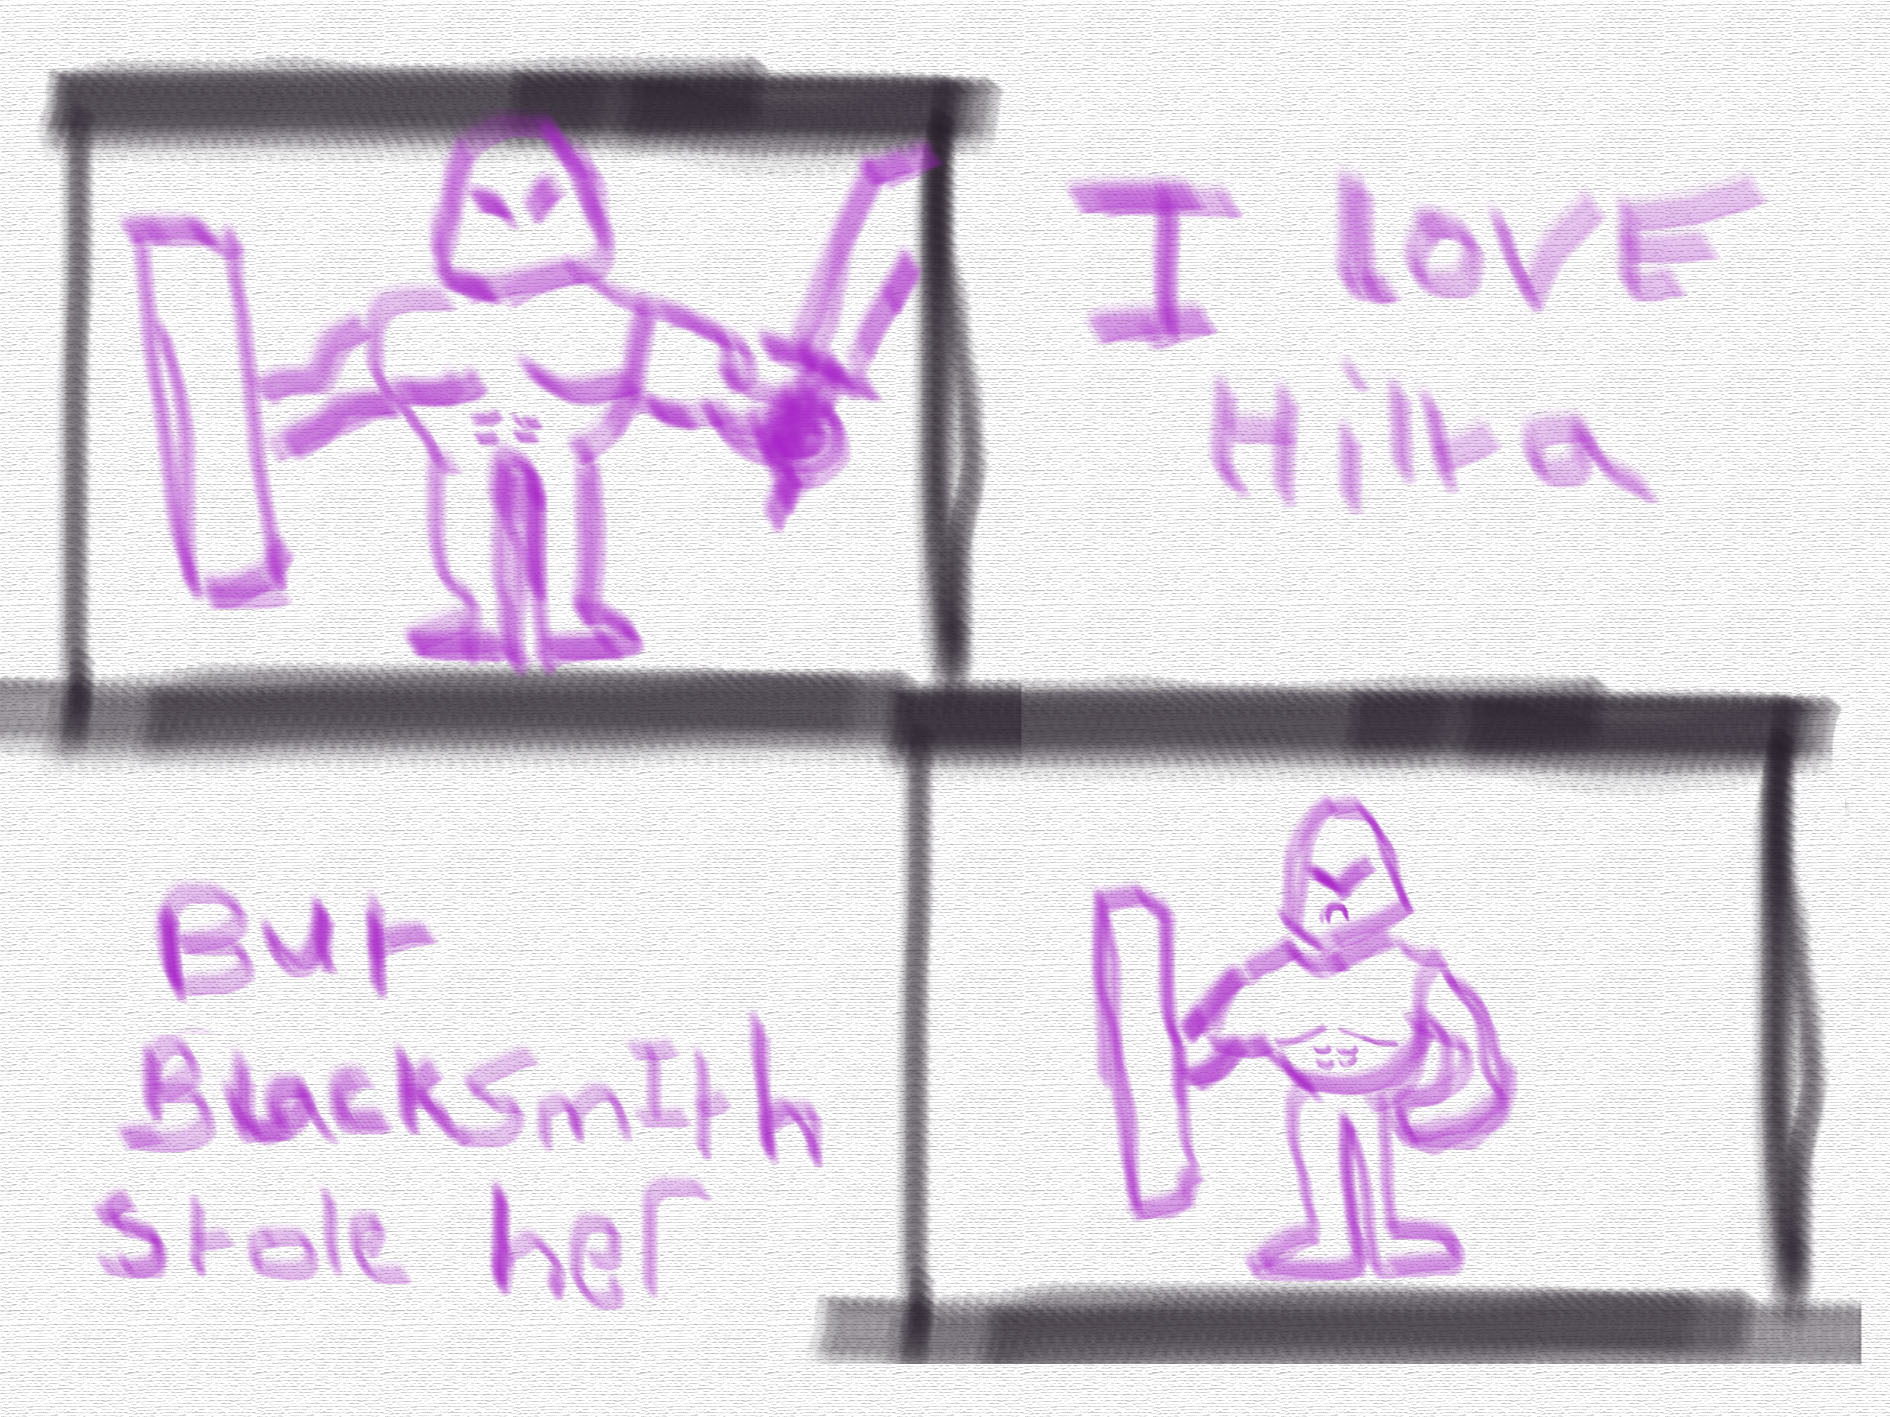 I lovE
Hilta
But
BlackSmIth
Stole her